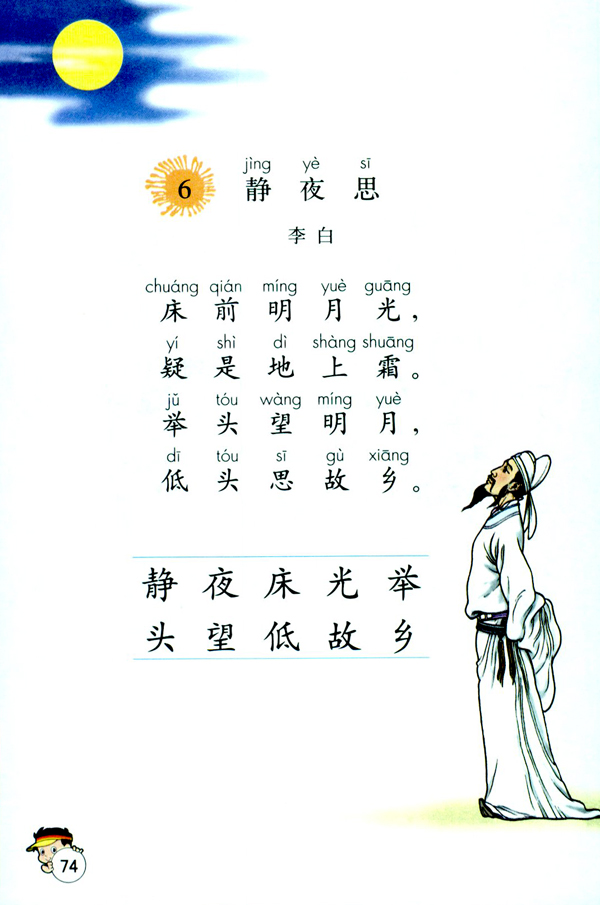 jìng yè sī
6 静夜思
李白
chuáng qián míng yuè guāng
床前明月光，
yí shì dì shàng shuāng
疑是地上霜。
jǔ tóu wàng míng yuè
举头望明月，
dī tóu sī gù xiāng
低头思故乡。
静夜床光举
头望低故乡
74